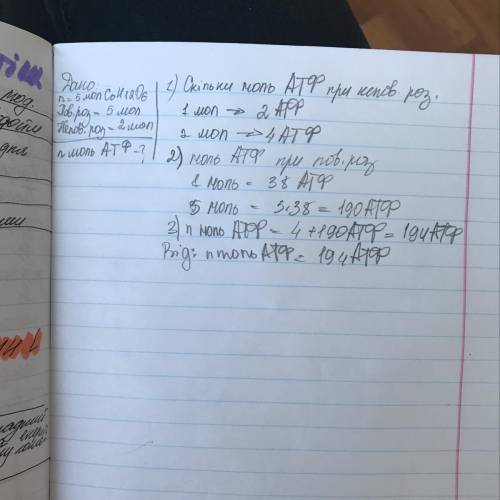 Дано
n = 5 моль C6H12O6
Пов. роз = 5 моль
Непов. роз = 2 моль
n моль АТФ - ?
1) Скільки моль АТФ при непов. роз.
1 мол → 2 АТФ
2 мол → 4 АТФ
2) моль АТФ при пов. роз
1 моль = 38 АТФ
5 моль = 5·38 = 190 АТФ
3) n моль АТФ = 4 + 190 АТФ = 194 АТФ
Від: n моль АТФ = 194 АТФ